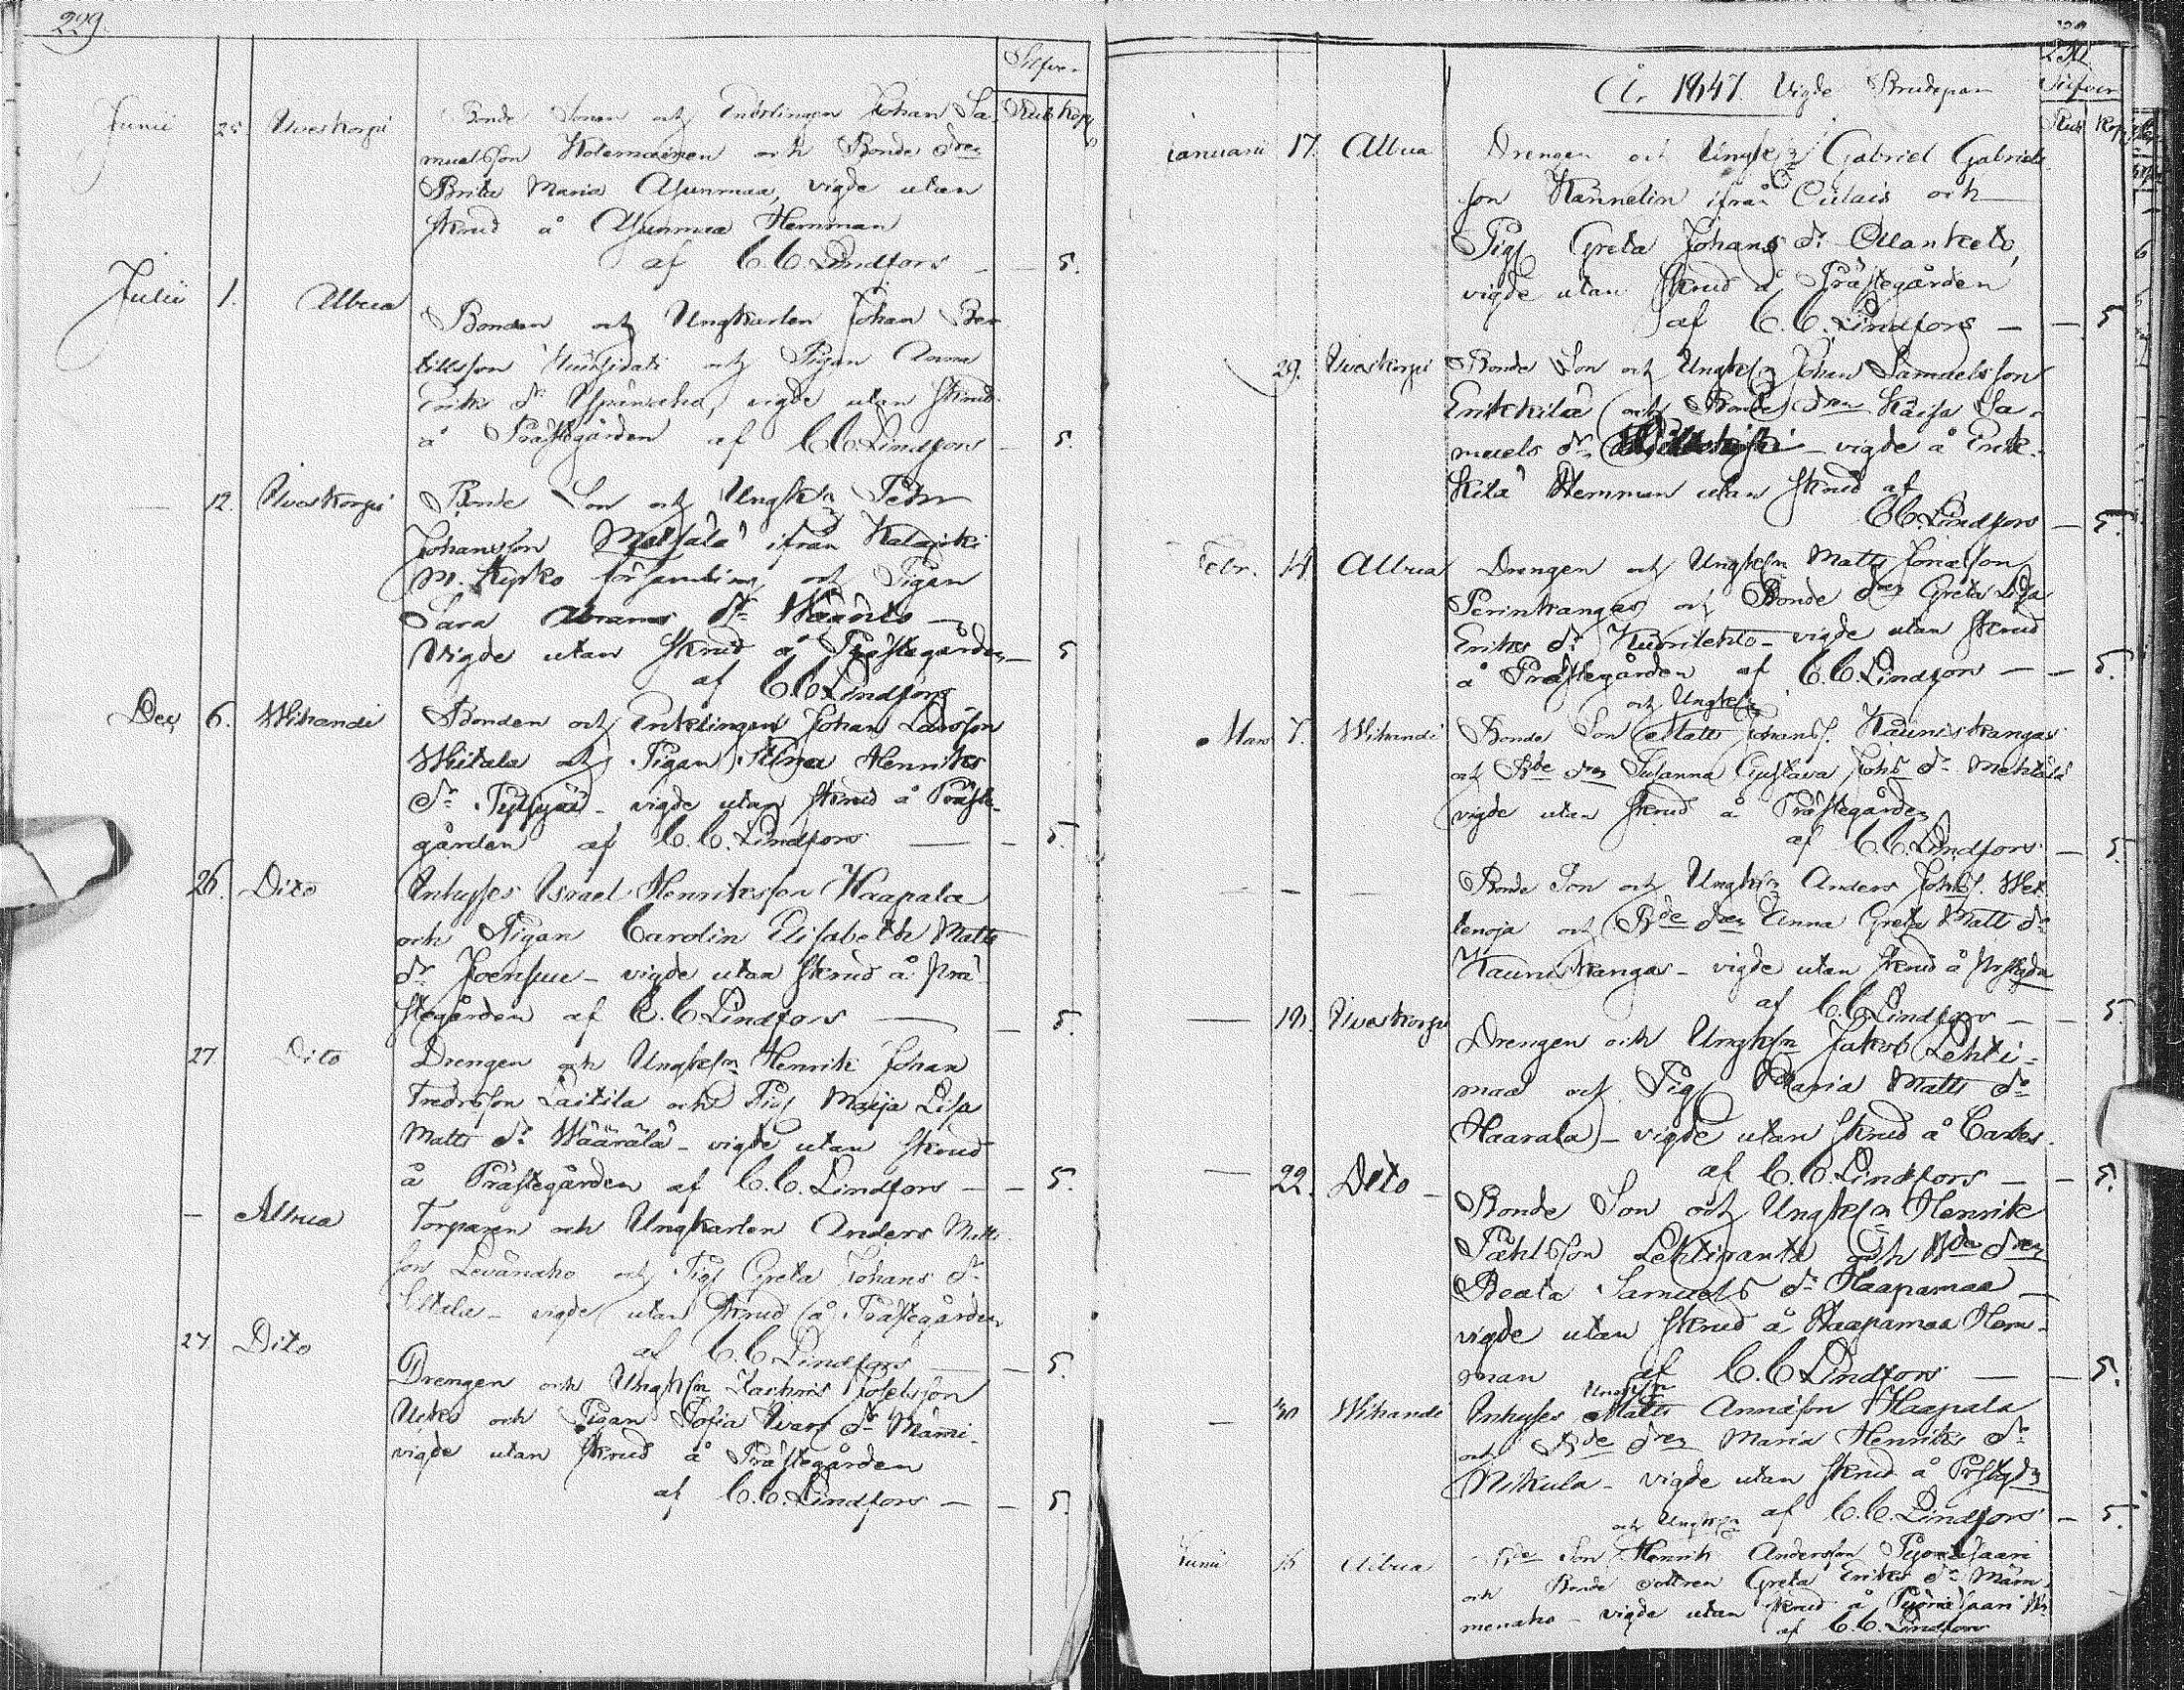 229.
Silfver
Rub Kop
Junii 25 Uveskorpi Bonde Sonen och Enklingen Johan Sa
muelsson Holemainen och Bonde dren
Brita Maria Ojunmaa, vigde utan
skrud å Ojunmaa Hemman
af C. C. Lindfors — — 5.
Julii 1. Albua Bonden och Ungkarlen Johan Ber
tillsson och Pigan Anna
Eriks dr vigde utan skrud
å Prästegården af C C Lindfors — 5.
— 12. Uveskorpi Bonde Son och Ungksn Petter
Johansson Matsala ifrån Kalajoki
M. Kyrko församling och Pigan
Sara Abrams dr
Vigde utan skrud å Prästegården — 5
af C C Lindfors
Dec 6. Wihandi Bonden och Enklingen Johan Larsson
Wiitala och Pigan Stina Henriks
dr vigde utan skrud å Präste-
gården af C. C. Lindfors — — 5.
26. Dito Inhyses Israel Henriksson Haapala
och Pigan Carolin Elisabeth Matts
dr Joensuu — vigde utan skrud å Prä
stegården af C. C Lindfors — — 5.
27. Dito Drengen och Ungksn Henrik Johan
Fredrsson Laitila och Pig Maija Lisa
Matts dr Wäärälä — vigde utan skrud
å Prästegården af C. C. Lindfors — — 5.
— Albua Torparen och Ungkarlen Anders Matts
son Levänaho och Pig Greta Johans dr
vigde utan skrud å Prästegården
af C. C Lindfors — — 5.
27 Dito Drengen och Ungksn Zachris Josefsson
och Pigan Sofia Ivars dr
vigde utan skrud å Prästegården
af C. C. Lindfors — — 5.
230.
Silfver
Rub Kop
År 1847. Vigde Brudepar
januarii 17. Albua Drengen och Ungksn Gabriel Gabriels
son Kannelin ifrån Oulais och
Pig Greta Johans dr Ollanketo,
vigde utan skrud å Prästegården
af C. C. Lindfors — — 5
29. Uveskorpi Bonde Son och Ungksn Johan Samuelsson
Erikkilä och Bonde dren Kaisa Sa-
muels dr vigde å Erik-
kilä Hemman utan skrud af
C C. Lindfors — 5.
Febr. 14 Albua Drengen och Ungksn Matts Jonasson
Perinkangas och Bonde dren Greta Lisa
Eriks dr Kuonilehto — vigde utan skrud
å Prästegården af C. C. Lindfors — — 5.
och Ungksn
Mars 7. Wihandi Bonde Son Matts Johanss. Kauniskangas
och Bde dren Susanna Gustava Johs dr Mehtälä
vigde utan skrud å Prästegården
af C. C. Lindfors — 5.
— — — Bonde Son och Ungksn Anders Johss. Wet
tenoja och Bde dren Anna Greta Matts dr
Kauniskangas — vigde utan skrud å Prstgdn
af C. C. Lindfors — — 5.
— 19. Uveskorpi Drengen och Ungksn Jakob Lehti=
maa och Pig Maria Matts dr
Haarala — vigde utan skrud å
af C. C. Lindfors — — 5.
— 22. Dito — Bonde Son och Ungksn Henrik
Påhlsson Lehtiranta och Bde dren
Beata Samuels dr Haapamaa —
vigde utan skrud å Haapamaa Hem-
man af C. C Lindfors — — 5.
Ungksn
— 30 Wihandi Inhyses Matts Annäson Haapala
och Bde dren Maria Henriks dr
Nikula — vigde utan skrud å Prstgdn
af C. C. Lindfors — 5.
och Ungksn
Junii 15 Albua Bde Son Henrik Andersson Pyoräsaari
och Bonde dottren Greta Eriks dr Mäm-
menaho — vigde utan skrud å Pyöräsaari
af C. C. Lindfors